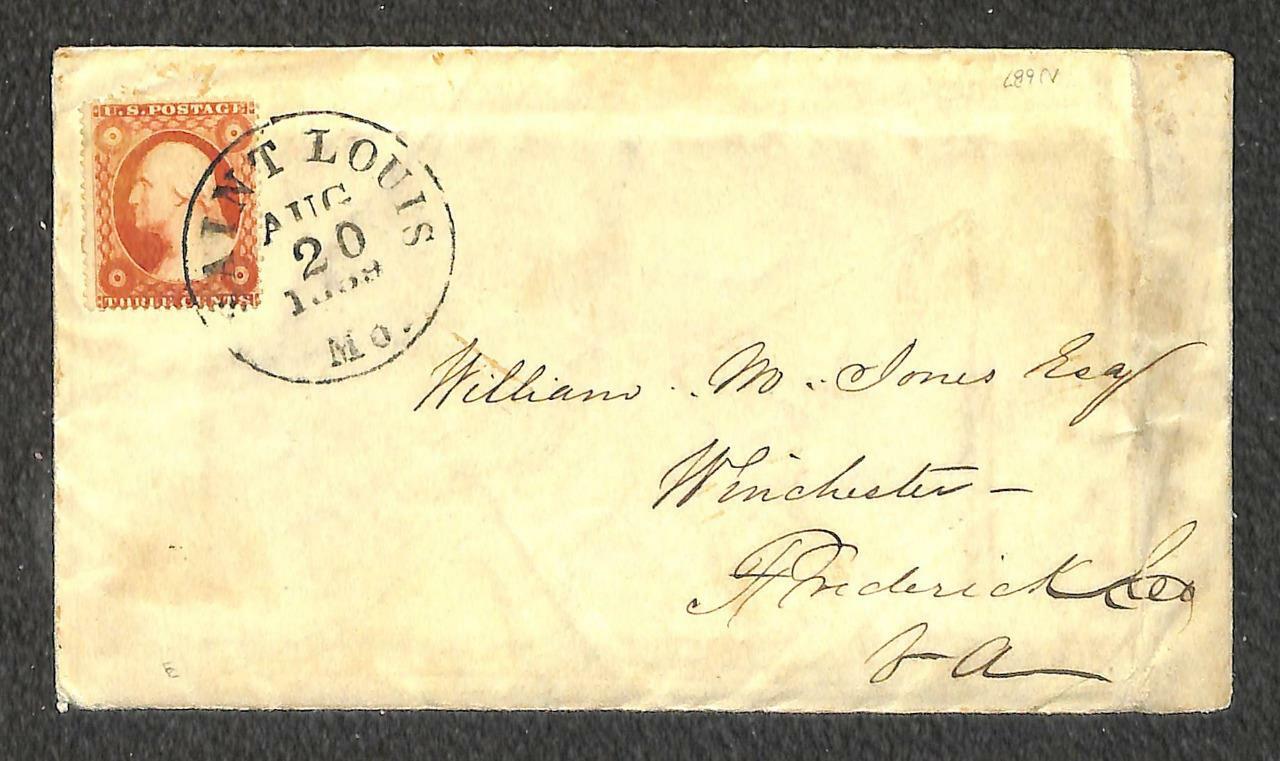 U.S. POSTAGE
THREE CENTS
SAINT LOUIS
AUG
20
1859
Mo.
William . M . Jones Esq
Winchester –
Frederick Co
Va
E